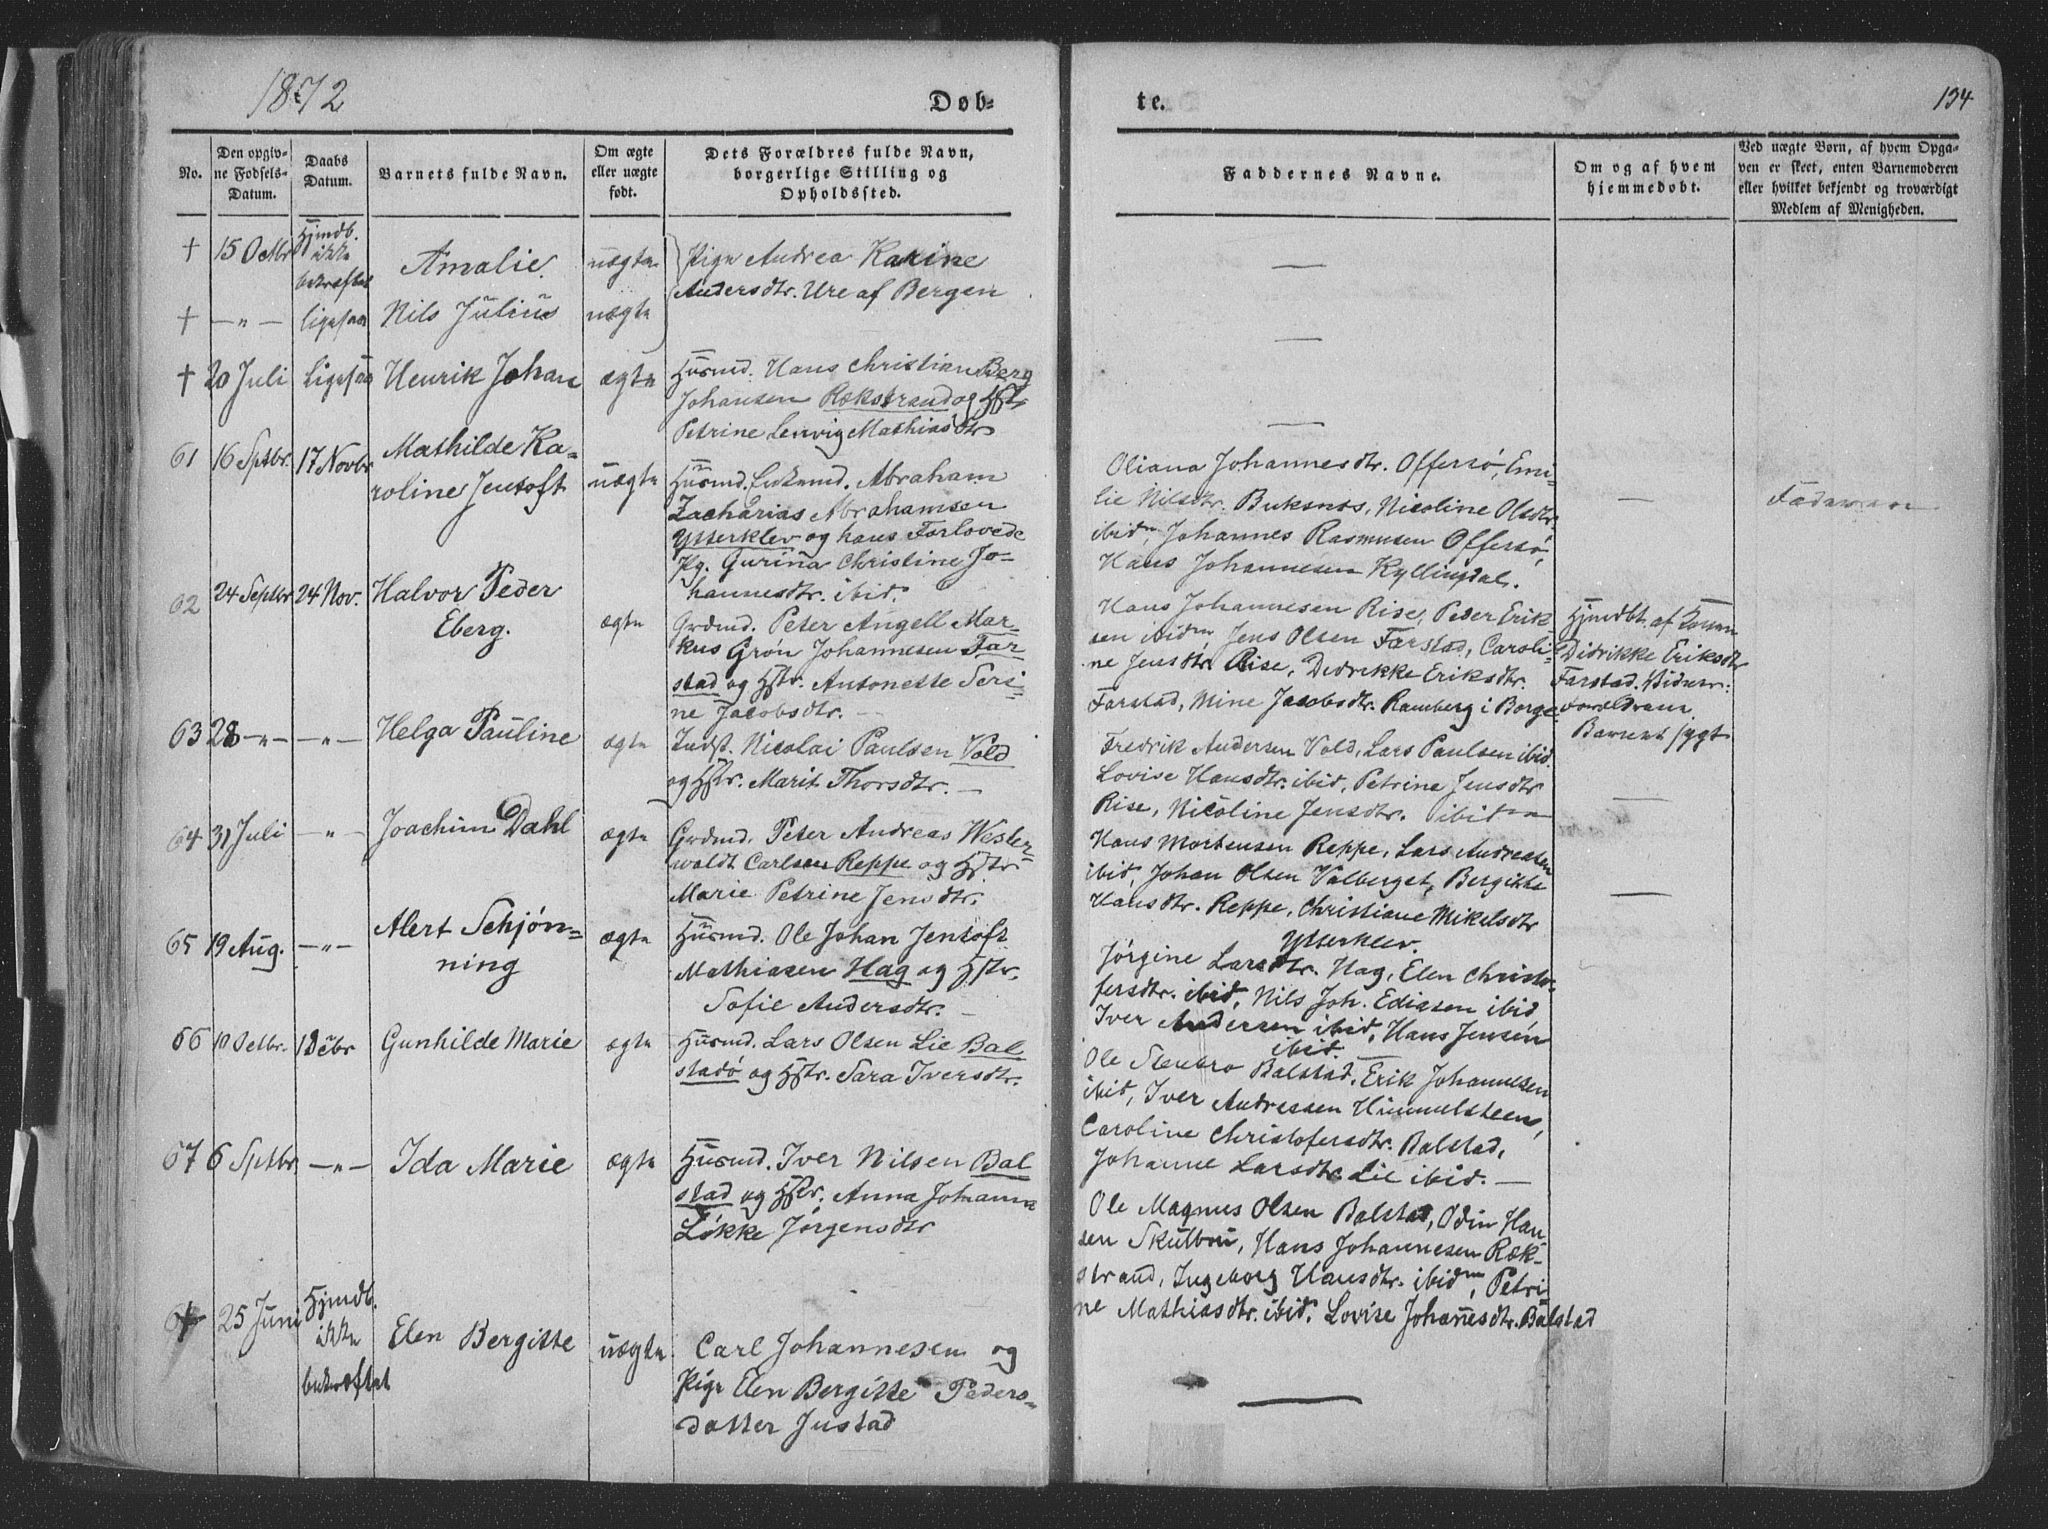 1872
Døb-
te.
134
No.
Den opgiv-
ne Fødsels-
Datum.
Daabs
Datum.
Barnets fulde Navn.
Om ægte
eller uægte
født.
Dets Forældres fulde Navn,
borgerlige Stilling og
Opholdssted.
Faddernes Navne.
Om og af hvem
hjemmedøbt.
Ved uægte Børn, af hvem Opga-
ven er skeet, enten Barnemoderen
eller hvilket bekjendt og troværdigt
Medlem af Menigheden.
† 15
Hjmdb.
ikke
bekræftet
Amalie.
uægte
Pige Andrea Karine
Andersdtr. Ure af Bergen
—
† —"—
ligesaa
Nils Julius
uægte
—
† 20 Juli
Ligesaa
Henrik Johan
ægte
Husmd. Hans Christian Berg
Johansen Rækstrand og Hstr.
Petrine Lenvig Mathiasdtr
—
61 16 Septbr. 17 Novbr
Mathilde Ka-
roline Jentoft
uægte
Husmd. Enkemd. Abraham
Zacharias Abrahamsen
Ytterklev og hans Forlovede
Pg. Gurina Christine Jo-
hannesdtr. ibid.
Oliana Johannesdtr. Offersø, Emi-
lie Nilsdtr. Buksnes, Nicoline Olsdtr
ibidm, Johannes Rasmusen Offersø,
Hans Johannesen Kyllingdal.
—
Faderen
62 24 Septbr 24 Nov.
Halvor Peder
Eberg.
ægte
Grdmd. Peter Angell Mar-
kus Grøn Johannesen Far
stad og Hstr. Antonette Seri-
ne Jacobsdtr. —
Hans Johannesen Rise, Peder Erik-
sen ibidm, Jens Olsen Farstad, Caroli-
ne Jensdtr. Rise, Didrikke Eriksdtr.
Farstad, Mine Jacobsdtr. Ramberg i Borge
Hjmdbt. af
Didrikke Eriksdtr
Farstad.
Forældrene
Barnet sygt
63 28 —"— —"—
Helga Pauline
ægte
Indst. Nicolai Paulsen Vold
og Hstr. Marit Thorsdtr. —
Fredrik Andersen Vold, Lars Paulsen ibid
Lovise Hansdtr. ibid, Petrine Jensdtr
Rise, Nicoline Jensdtr. ibidm
—
64 31 Juli —"—
Joachim Dahl
ægte
Grdmd. Peter Andreas Wester-
waldt Carlsen Reppe og Hstr
Marie Petrine Jensdtr.
Hans Mortensen Reppe, Lars Andreasen
ibid, Johan Olsen Valberget, Bergitte
Hansdtr. Reppe, Christiane Mikelsdtr
Ytterklev.
—
65 19 Aug. —"—
Alert Schjøn-
ning
ægte
Husmd. Ole Johan Jentoft
Mathiasen Hag og Hstr.
Sofie Andersdtr. —
Jørgine Larsdtr. Hag, Elen Christo-
fersdtr. ibid, Nils Joh. Ediasen ibid
Iver Andersen ibid, Hans Jensen
ibid.
66 10 Octbr. 1 Debr
Gunhilde Marie
ægte
Husmd. Lars Olsen Lie Bal
stadø og Hstr. Sara Iversdtr.
Ole Stenbro Balstad, Erik Johannesen
ibid, Iver Andressen Himmelsteen,
Caroline Christofersdtr. Balstad,
Johanne Larsdtr. Lie ibid. —
67 6 Septbr —"—
Ida Marie
ægte
Husmd. Iver Nilsen Bal
stad og Hstr. Anna Johanna
Løkke Jørgensdtr
Ole Magnus Olsen Balstad, Odin Han-
sen Skulbru, Hans Johannesen Ræk-
strand, Ingeborg Hansdtr. ibidm, Petri-
ne Mathiasdtr. ibid, Lovise Johannesdtr. Balstad
† 25 Juni
Hjmdb.
ikke
bekræftet
Elen Bergitte
uægte
Carl Johannesen og
Pige Elen Bergitte Peders-
datter Justad
—